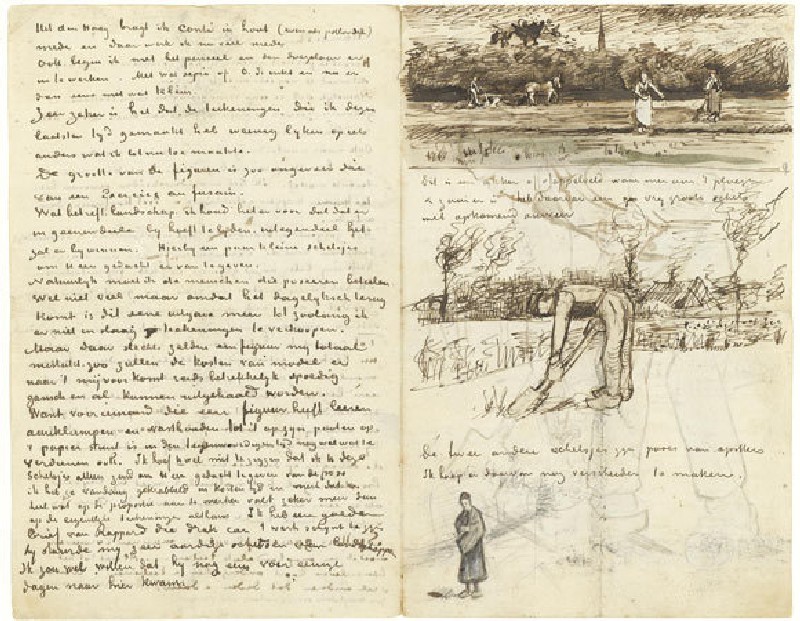 Uit den Haag bragt ik Conté in hout (evenals potlooden)
mede en daar werk ik nu veel mede.
Ook begin ik met het penseel en den doezelaar er
in te werken. Met wat sepia of O.I. inkt en nu en
dan eens met wat kleur.
Zeer zeker is het dat de teekeningen die ik dezen
laatsten tijd gemaakt heb weinig lijken op iets
anders wat ik tot nu toe maakte.
De grootte van de figuren is zoo ongeveer die
van een Exercice au fusain.
Wat betreft landschap, ik houd het er voor dat dat er
in geenendeele bij hoeft te lijden, integendeel het
zal er bij winnen. Hierbij een paar kleine schetsjes
om U een gedacht er van te geven.
Natuurlijk moet ik de menschen die poseeren betalen
Wel niet veel maar omdat het dagelijksch terug
komt is dit eene uitgave meer tot zoolang ik
er niet in slaag teekeningen te verkoopen.
Maar daar slechts zelden een figuur mij totaal
mislukt zoo zullen de kosten van model er
naar 't mij voorkomt reeds betrekkelijk spoedig
gansch en al kunnen uitgehaald worden.
Want voor iemand die een figuur heeft leeren
aanklampen en vasthouden tot 't op zijn pooten op
't papier staat is er in den tegenwoordigen tijd nog wel wat te
verdienen ook. Ik hoef U wel niet te zeggen dat ik U deze
schetsjes alleen zend om U een gedacht te geven van de pose
ik heb ze vandaag gekrabbeld in korten tijd en merk dat er
heel wat op de proportie aan te merken valt zeker meer dan
op de eigentlijke teekeningen althans. Ik heb een goeden
brief van Rappard die druk aan 't werk schijnt te zijn
hij stuurde mij een aardige schetsen van landschappen
Ik zou wel willen dat hij nog eens voor eenige
dagen naar hier kwam.
Dit is een akker of stoppelveld waar men aan 't ploegen
& zaaien is heb daarvan een vrij groote schets
met opkomend onweer
De twee andere schetsjes zijn poses van spitters
Ik hoop er daarvan nog verscheidene te maken.